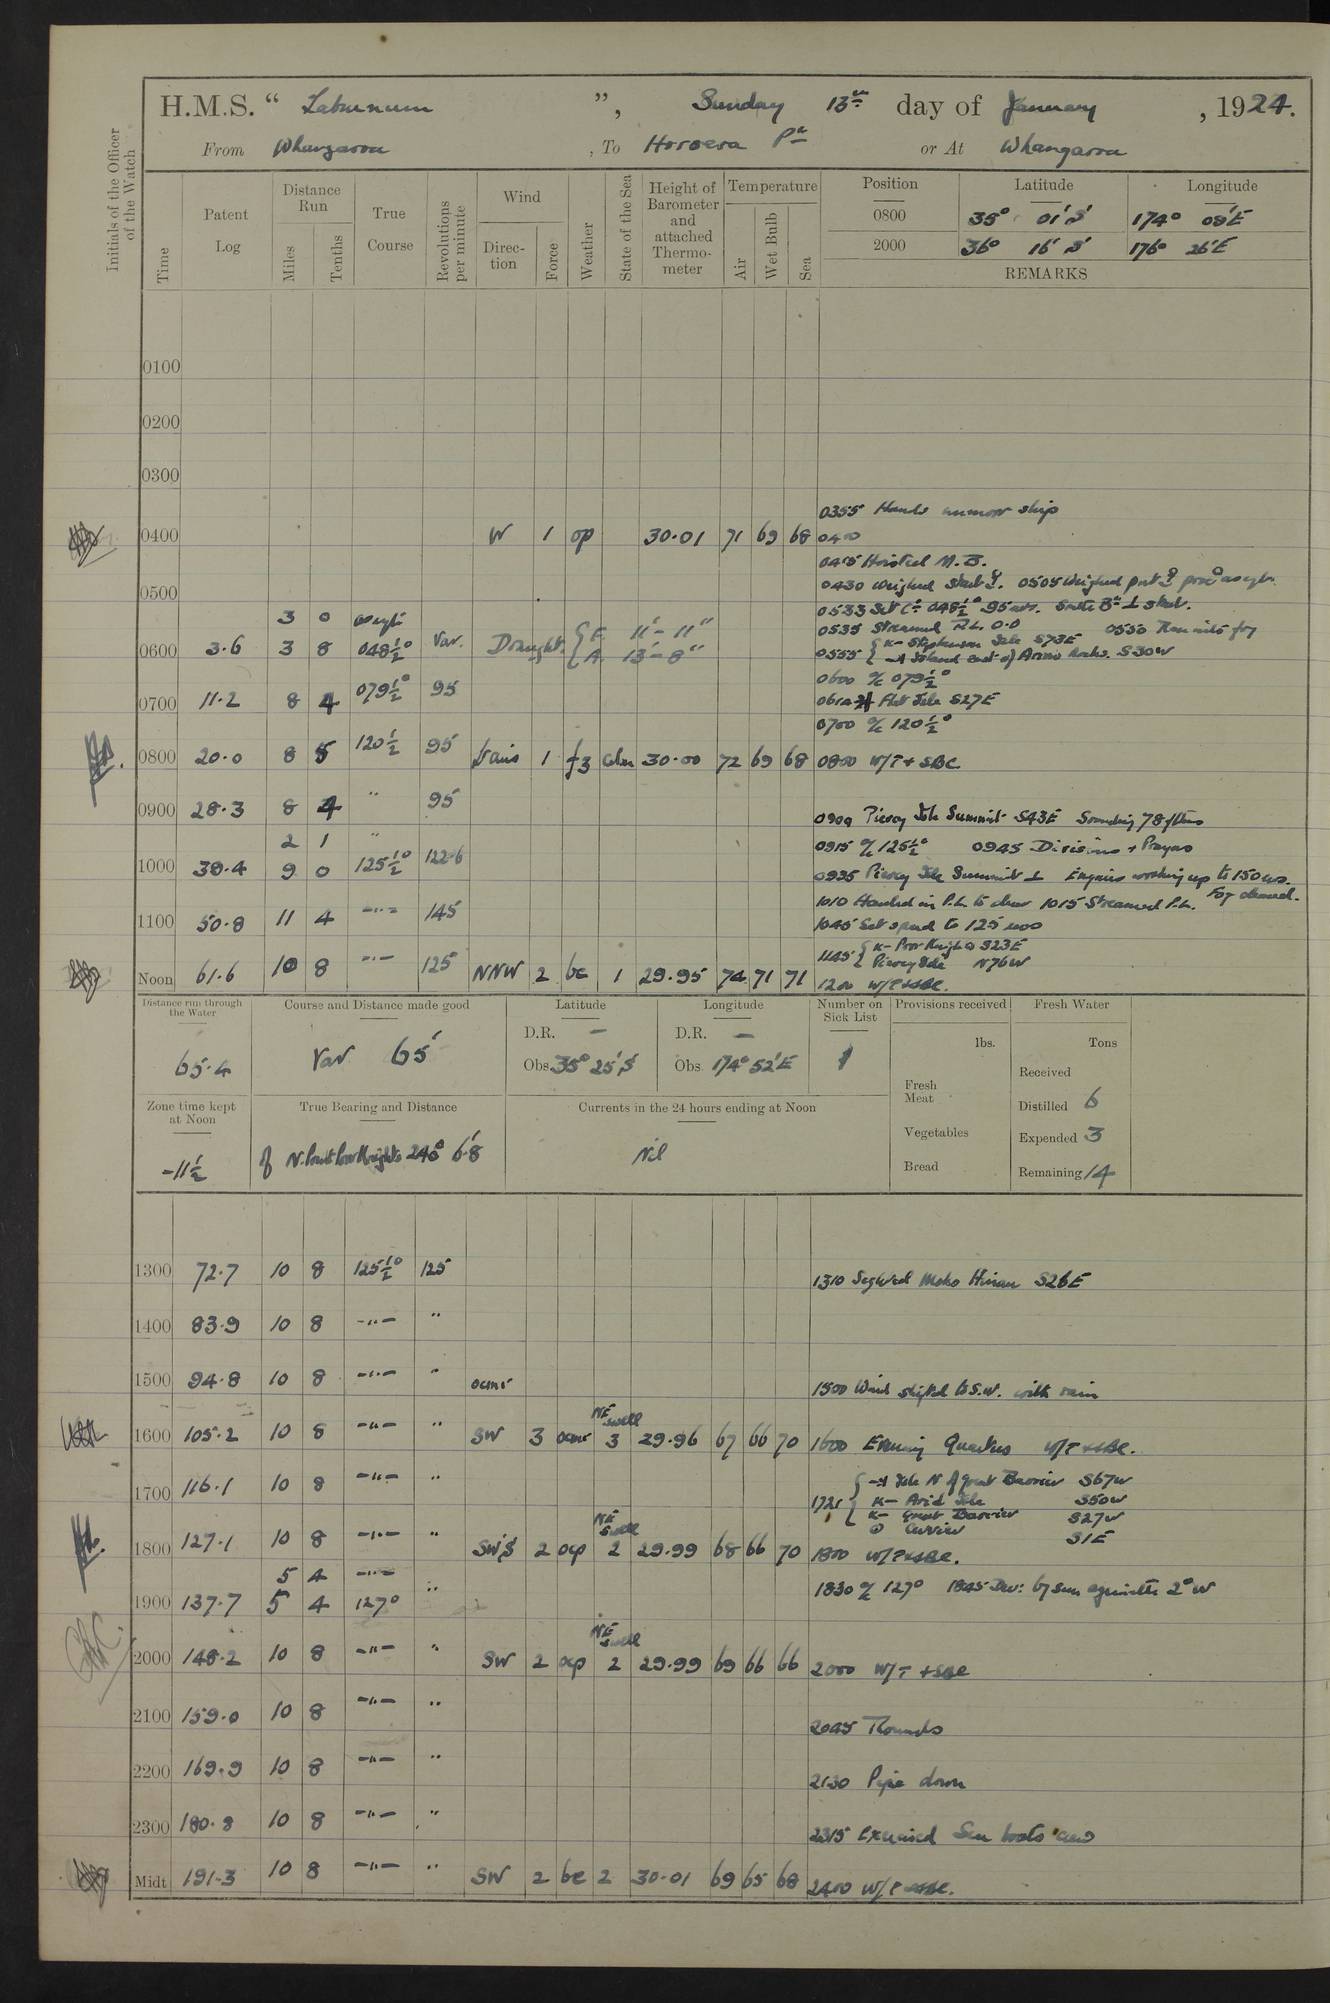 H.M.S. “ Laburnum ”, Sunday 13th day of January, 1924.
From Whangaroa, To Horoera Pt or At Whangaroa
Initials of the Officer of the Watch
Time
Patent Log
Distance Run
Miles
Tenths
True Course
Revolutions per minute
Wind
Direction
Force
Weather
State of the Sea
Height of Barometer and attached Thermometer
Temperature
Air
Wet Bulb
Sea
Position Latitude Longitude
0800 35° 01' S 174° 08' E
2000 36° 16' S 176° 26' E
REMARKS
0100
0200
0300
0355 Hands unmoor ship
0400 W 1 op 30.01 71 69 68 0400
0415 Hoisted M.B.
0430 Weighed Stbd. 0505 Weighed port proc as req.
0500
0533 Set Co 048½° 95 revs.
3 0 as req.
0535 Streamed P.L. 0.0 0550 Ran into fog
0600 3.6 3 8 048½° Var. Draught { F. 11' - 11" A. 13' - 8"
0555 { Stephenson Isle S73E Island east of Arrow Rocks. S30W
0600 a/c 079½°
0700 11.2 8 4 079½° 95
Flat Isle S27E
0700 a/c 120½°
0800 20.0 8 5 120½ 95 Vairs 1 f3 Calm 30.00 72 69 68 0800 W/T + SBC
0900 28.3 8 4 " 95
0909 Piercy Isle Summit S43E Sounding 78 fthms
2 1 "
0915 a/c 125½° 0945 Divisions + Prayers
1000 39.4 9 0 125½° 122.6
0935 Piercy Isle Summit ⊥ Engines working up to 150 revs.
1010 Hauled in P.L. to clear 1015 Streamed P.L. Fog cleared.
1100 50.8 11 4 -"- 145
1045 Set speed to 125 revs
1145 { Poor Knights S23E Piercy Isle N76W
Noon 61.6 10 8 -"- 125 NNW 2 bc 1 29.95 74 71 71 1200 W/T + SBC.
Distance run through the Water
65.4
Course and Distance made good
Var 65'
Latitude
D.R. —
Obs. 35° 25' S
Longitude
D.R. —
Obs. 174° 52' E
Number on Sick List
1
Provisions received
lbs.
Fresh Meat
Vegetables
Bread
Fresh Water
Tons
Received
Distilled 6
Expended 3
Remaining 14
Zone time kept at Noon
-11½
True Bearing and Distance
of N. Point Poor Knights 248° 6.8'
Currents in the 24 hours ending at Noon
Nil
1300 72.7 10 8 125½° 125
1310 Sighted Moko Hinau S26E
1400 83.9 10 8 -"- "
1500 94.8 10 8 -"- " ocmr
1500 Wind shifted to S.W. with rain
1600 105.2 10 8 -"- " SW 3 ocmr NE swell 3 29.96 67 66 70 1600 Evening Quarters W/T + SBC.
1700 116.1 10 8 -"- "
1721 { Isle N of Great Barrier S67W
Arid Isle S50W
Great Barrier S27W
Cuvier S1E
1800 127.1 10 8 -"- " SW'S 2 ocp NE swell 2 29.99 68 66 70 1800 W/T + SBC.
5 4 -"-
1830 a/c 127° 1845 Dev: by sun 2° W
1900 137.7 5 4 127° "
2000 148.2 10 8 -"- " SW 2 ocp NE swell 2 29.99 69 66 66 2000 W/T + SBC
2100 159.0 10 8 -"- "
2045 Rounds
2200 169.9 10 8 -"- "
2130 Pipe down
2300 180.8 10 8 -"- "
2315 Exercised Sea boats crew
Midt 191.3 10 8 -"- " SW 2 bc 2 30.01 69 65 68 2400 W/T + SBC.